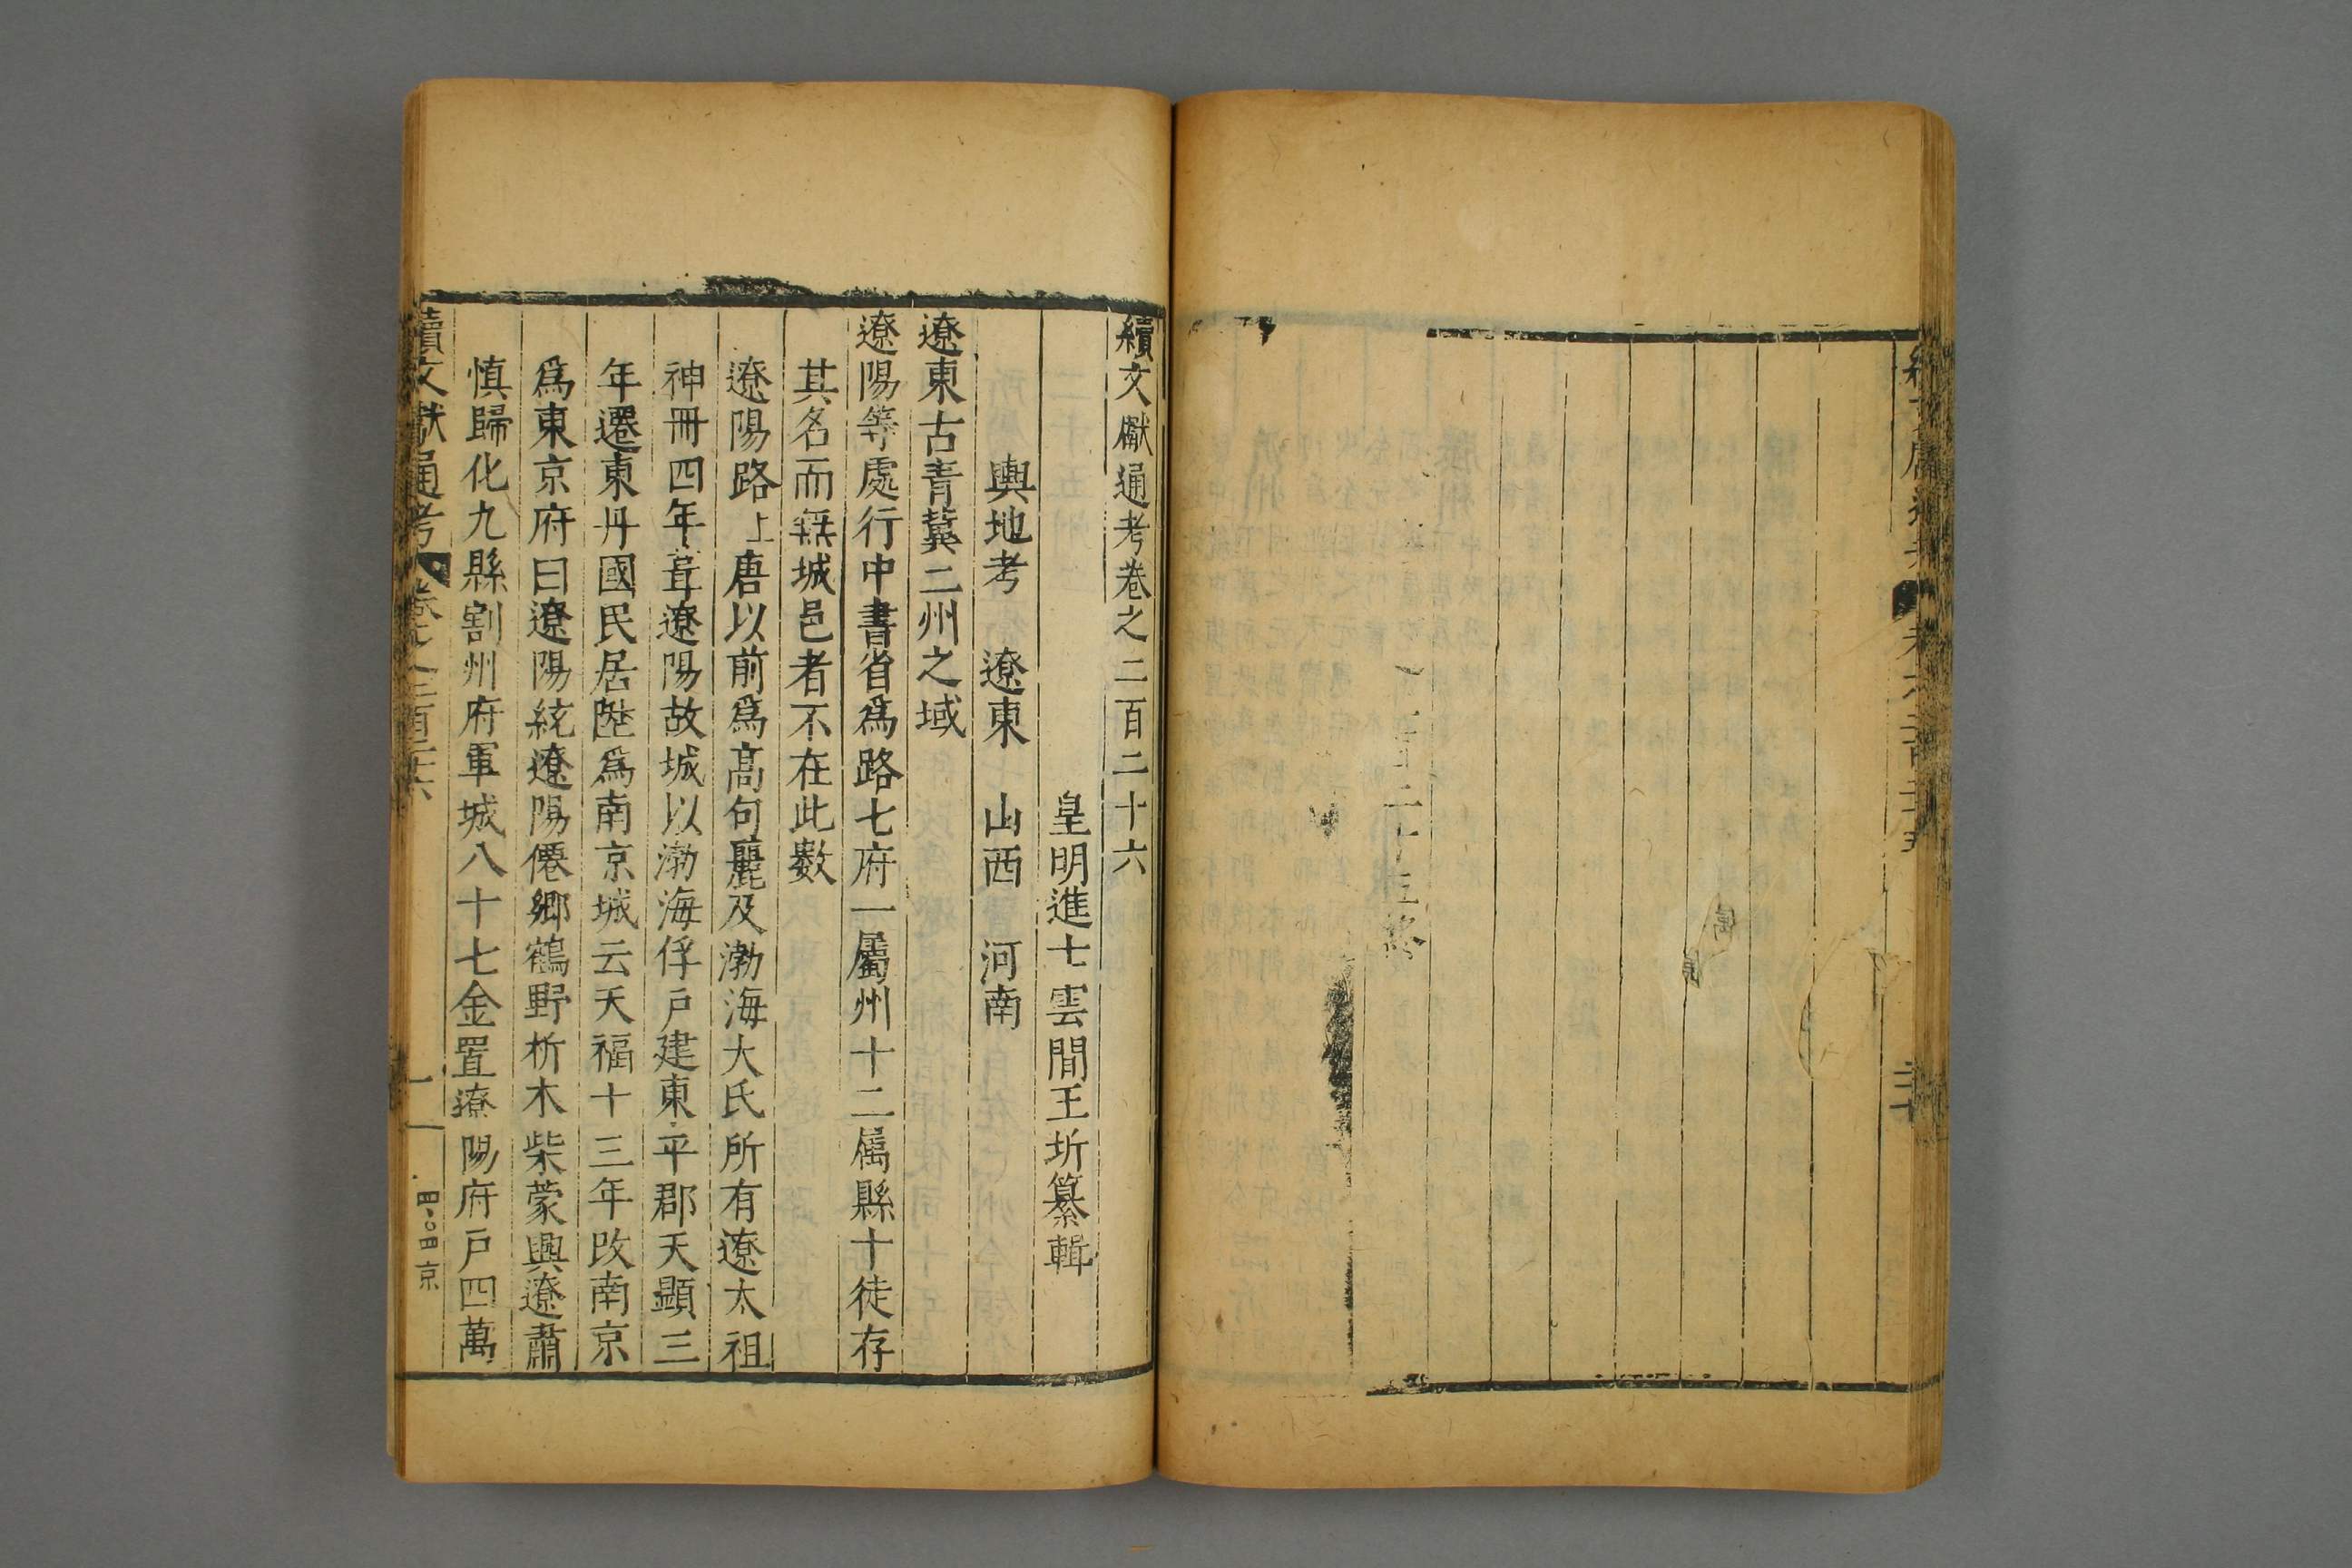 二十五終
續文獻通考卷之二百二十六
皇明進士雲間王圻纂輯
輿地考 遼東 山西 河南
遼東古青冀二州之域
遼陽等處行中書省爲路七府一屬州十二屬縣十徒存
其名而無城邑者不在此數
遼陽路上唐以前爲高句驪及渤海大氏所有遼太祖
神冊四年葺遼陽故城以渤海俘戶建東平郡天顯三
年遷東丹國民居陞爲南京城云天福十三年改南京
爲東京府曰遼陽統遼陽僊鄉鶴野析木柴蒙興遼肅
慎歸化九縣割州府軍城八十七金置遼陽府戶四萬
續文獻通考 卷之二百二十六 一 四〇四京